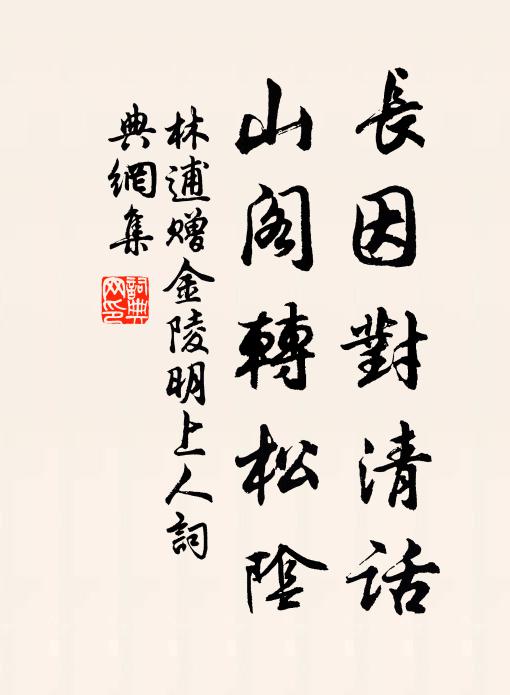 長因對清話
山閣轉松陰
林逋贈金陵明上人詞
典網集
詞典
网印